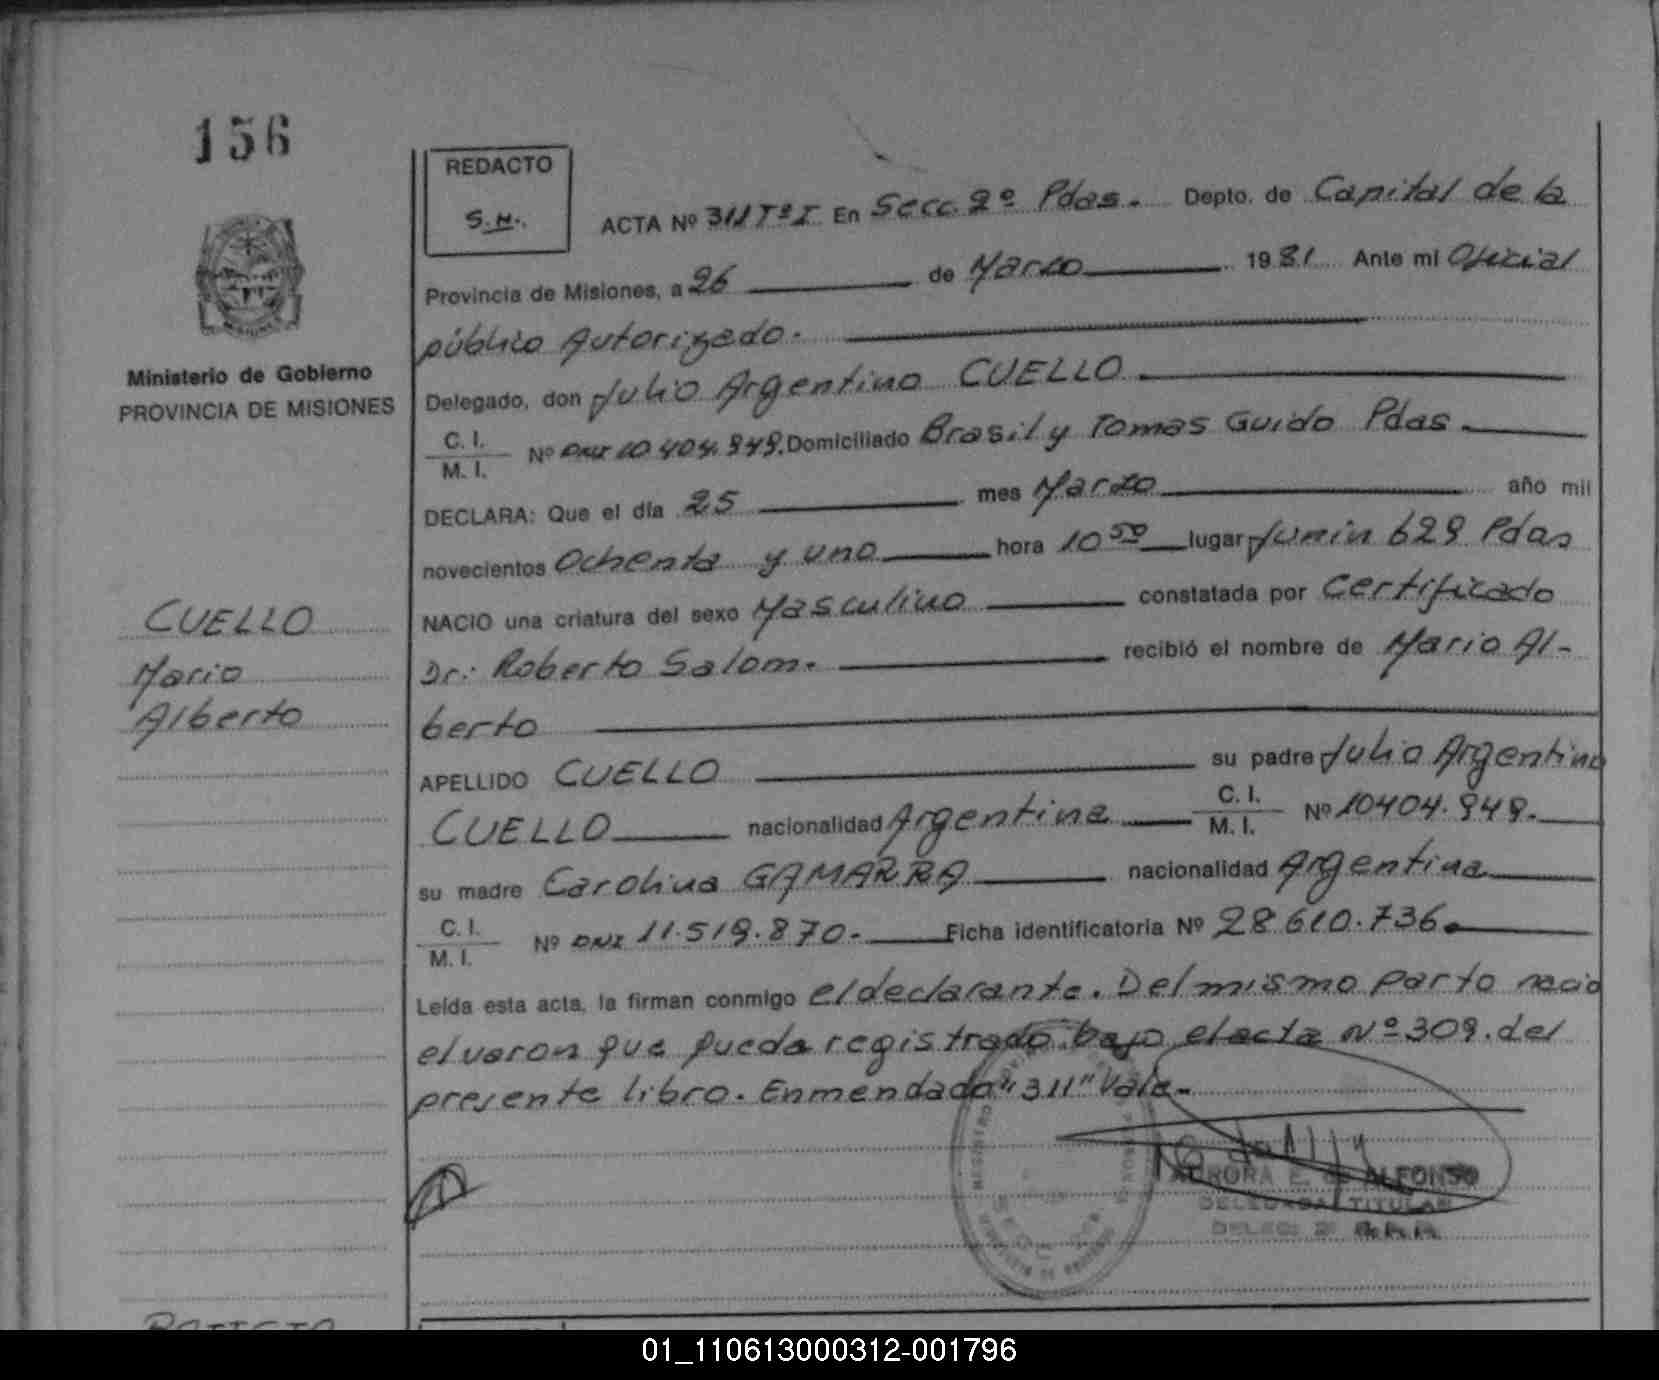 156
REDACTO
S.N.
ACTA Nº 311 Tº I En Secc. 2º Pdas. Depto. de Capital de la
Provincia de Misiones, a 26 de Marzo 1981 Ante mi Oficial
público Autorizado.
Ministerio de Gobierno
PROVINCIA DE MISIONES
Delegado, don Julio Argentino CUELLO
C. I.
M. I. Nº DNI 10.404.949. Domiciliado Brasil y Tomas Guido Pdas
DECLARA: Que el día 25 mes Marzo año mil
novecientos Ochenta y uno hora 10 50 lugar Junin 629 Pdas
NACIO una criatura del sexo Masculino constatada por Certificado
Dr.: Roberto Salom. recibió el nombre de Mario Al-
berto
CUELLO
Mario
Alberto
APELLIDO CUELLO su padre Julio Argentino
CUELLO nacionalidad Argentina C. I.
M. I. Nº 10404.949.
su madre Carolina GAMARRA nacionalidad Argentina
C. I.
M. I. Nº DNI 11.519.870. Ficha identificatoria Nº 28.610.736.
Leída esta acta, la firman conmigo el declarante. Del mismo parto nacio
el varon que queda registrado bajo el acta Nº 309. del
presente libro. Enmendado "311" Vale-
AURORA E. de ALFONSO
DELEGADA TITULAR
01_110613000312-001796